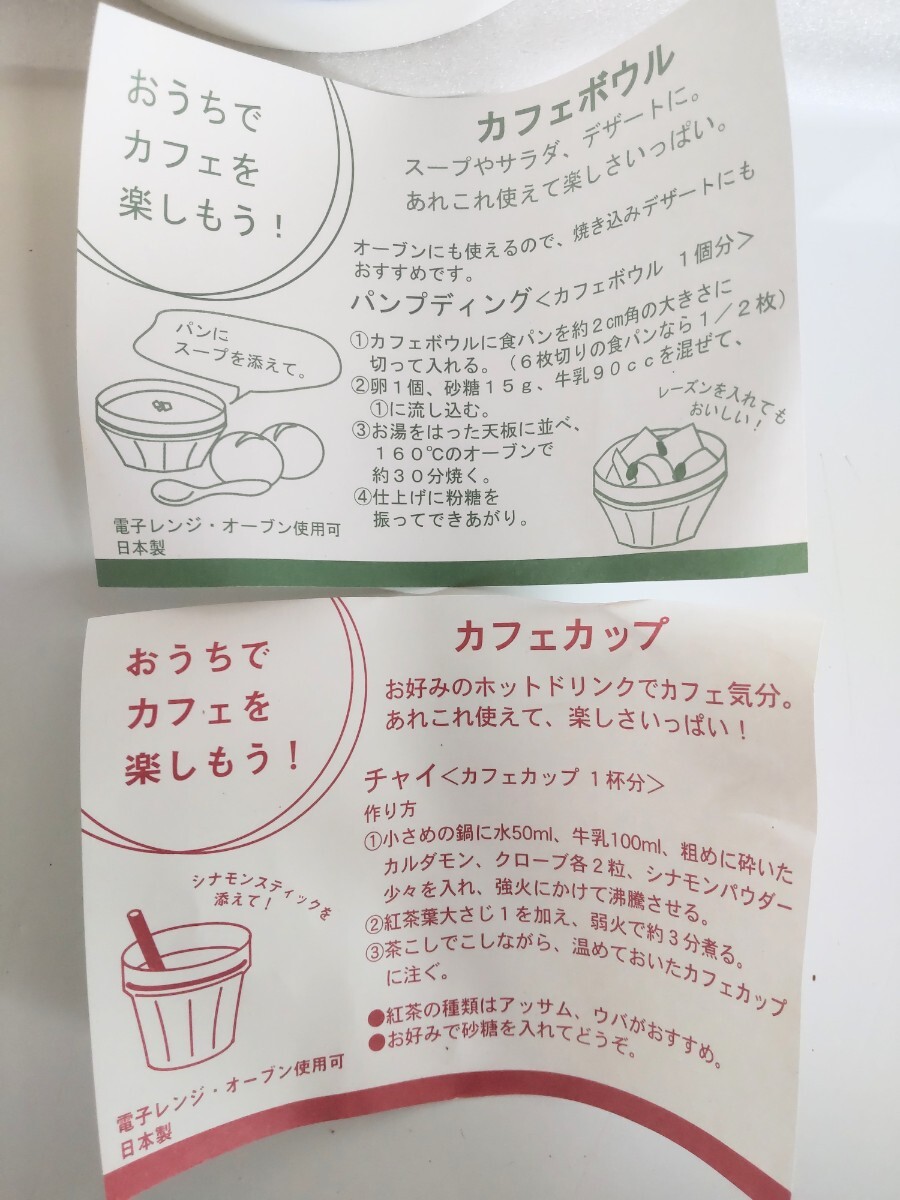 おうちで
カフェを
楽しもう！
カフェボウル
スープやサラダ、デザートに。
あれこれ使えて楽しさいっぱい。
オーブンにも使えるので、焼き込みデザートにも
おすすめです。
パンプディング＜カフェボウル １個分＞
①カフェボウルに食パンを約２㎝角の大きさに
切って入れる。（６枚切りの食パンなら１／２枚）
②卵１個、砂糖１５ｇ、牛乳９０ｃｃを混ぜて、
①に流し込む。
③お湯をはった天板に並べ、
１６０℃のオーブンで
約３０分焼く。
④仕上げに粉糖を
振ってできあがり。
パンに
スープを添えて。
レーズンを入れても
おいしい！
電子レンジ・オーブン使用可
日本製
おうちで
カフェを
楽しもう！
カフェカップ
お好みのホットドリンクでカフェ気分。
あれこれ使えて、楽しさいっぱい！
チャイ＜カフェカップ １杯分＞
作り方
①小さめの鍋に水50ml、牛乳100ml、粗めに砕いた
カルダモン、クローブ各２粒、シナモンパウダー
少々を入れ、強火にかけて沸騰させる。
②紅茶葉大さじ１を加え、弱火で約３分煮る。
③茶こしでこしながら、温めておいたカフェカップ
に注ぐ。
●紅茶の種類はアッサム、ウバがおすすめ。
●お好みで砂糖を入れてどうぞ。
シナモンスティックを
添えて！
電子レンジ・オーブン使用可
日本製